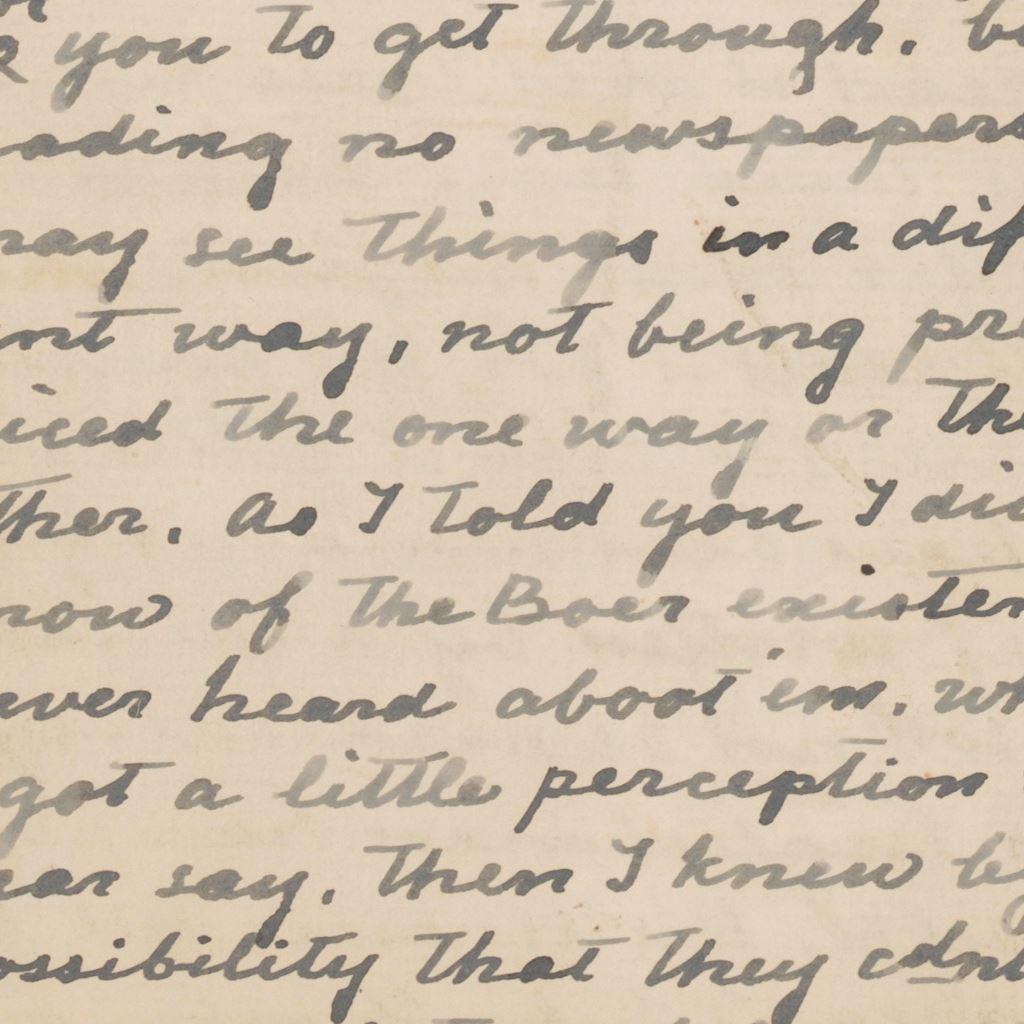 you to get through. b
ading no newspapers
ay see things in a dif
nt way, not being pre
iced the one way or the
ther. As I told you I di
now of the Boer existen
ever heard aboot em. wh
got a little perception
ear say. Then I knew by
ossibility that they cdnt